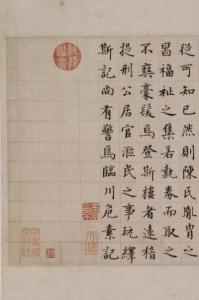 從可知已然則陳氏胤胄之
昌福祉之集若執券而取之
不爽豪髮焉登斯樓者遠稽
提刑公居官涖民之事玩繹
斯記尚有警焉臨川危素記